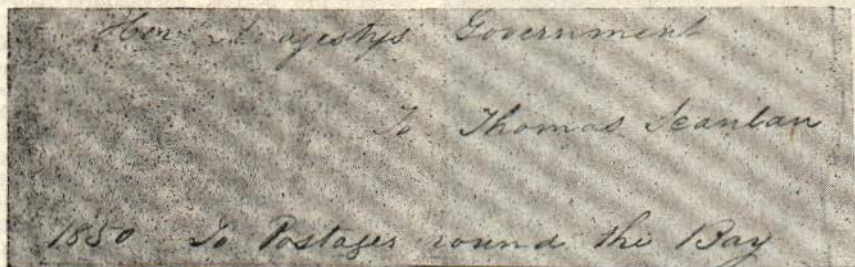 Her Majestys Government
To Thomas Scanlan
1850 To Postages round the Bay